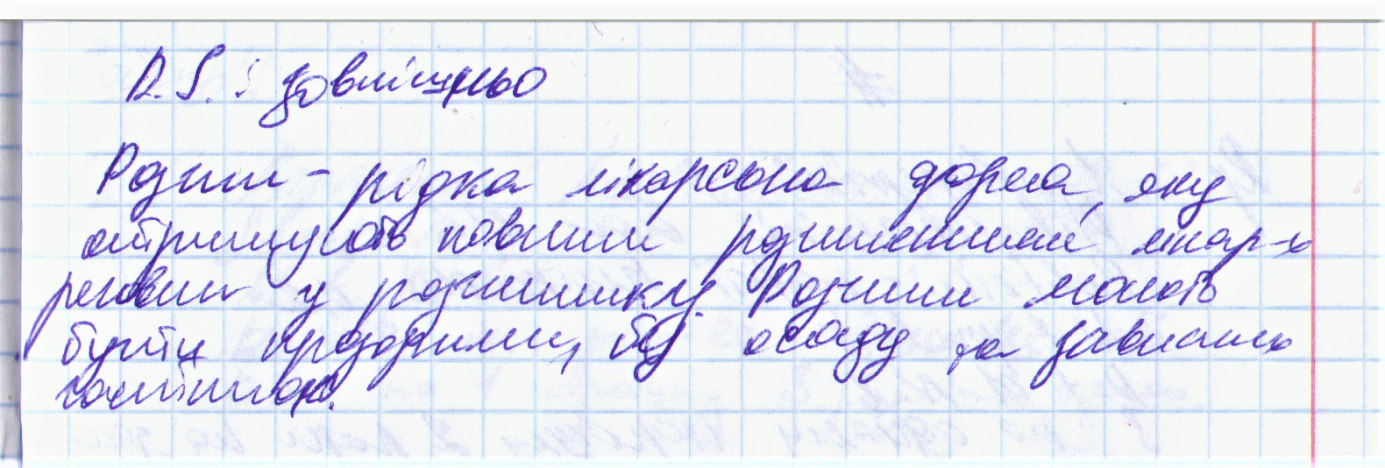 D. S.: зовнішньо
Розчин - рідка лікарська форма, яку
отримують повним розчиненням лікар-х
речовин у розчиннику. Розчини мають
бути прозорими, без осаду та завислих
частинок.